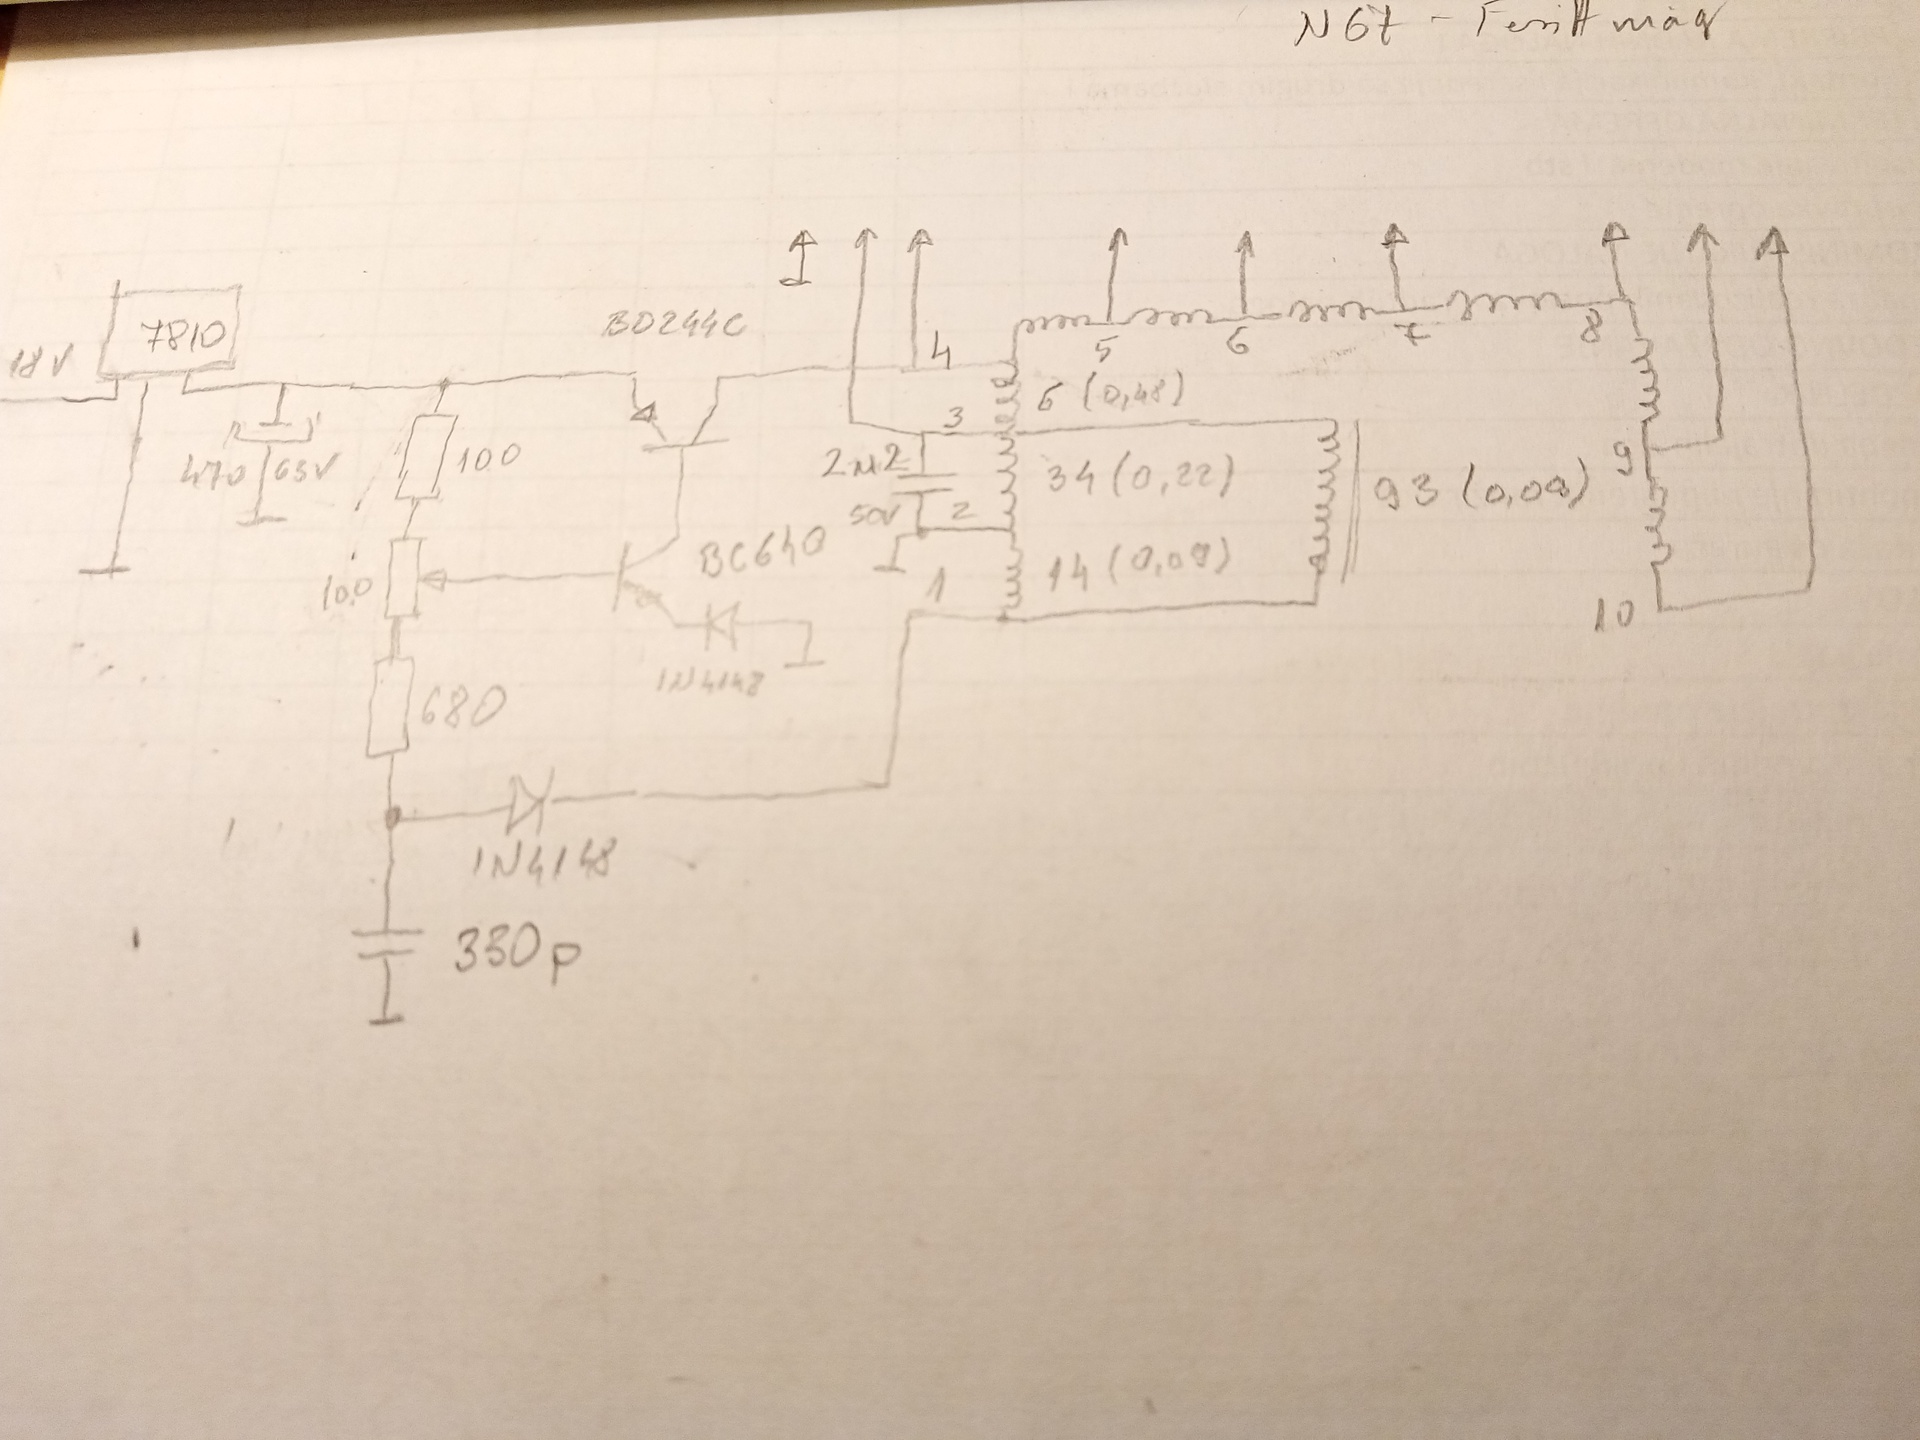 N67 - Ferritmag
7810
18V
BD244C
4
5
6
7
8
6 (0,48)
3
470 63V
100
2M2
34 (0,22)
93 (0,09)
9
50V
2
BC640
100
14 (0,09)
1
10
1N4148
680
1N4148
330p